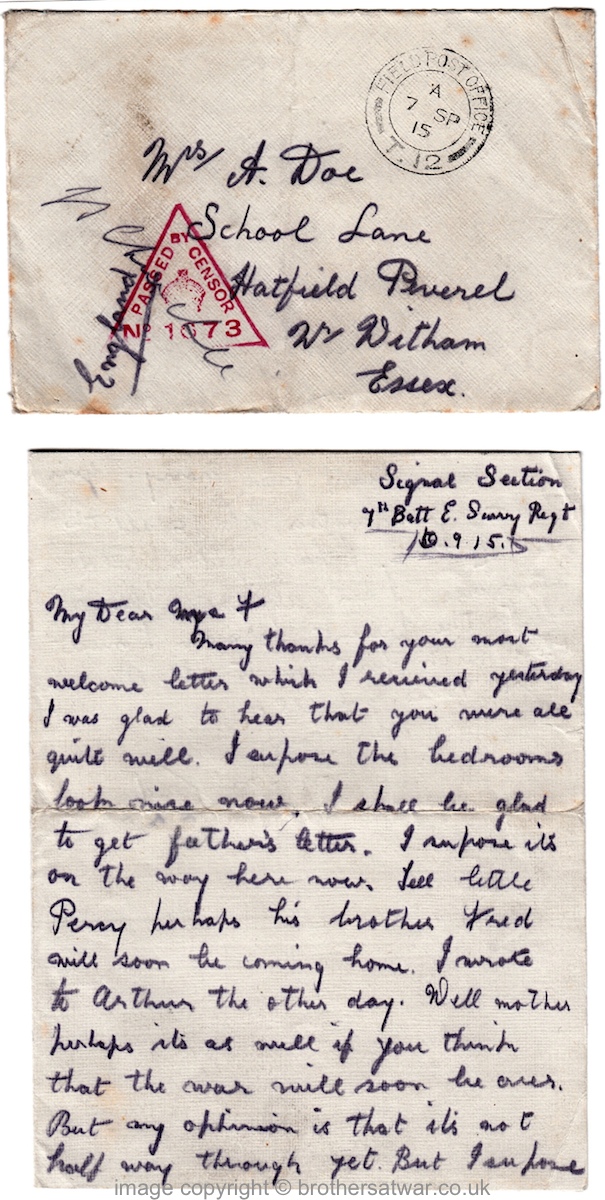 FIELD POST OFFICE
A
7 SP
15
T.12
Mrs A. Doe
School Lane
Hatfield Peverel
Nr Witham
Essex.
PASSED BY CENSOR
No 1673
Signal Section
7th Batt E. Surry Regt
6.9.15.
My Dear
Many thanks for your most
welcome letter which I recieved yesterday
I was glad to hear that you were all
quite well. I supose the bedrooms
look nice now. I shall be glad
to get father's letter. I supose its
on the way here now. Tell little
Percy perhaps his brother Fred
will soon be coming home. I wrote
to Arthur the other day. Well mother
perhaps its as well if you think
that the war will soon be over.
But my ophinion is that its not
half way through yet. But I supose
image copyright © brothersatwar.co.uk